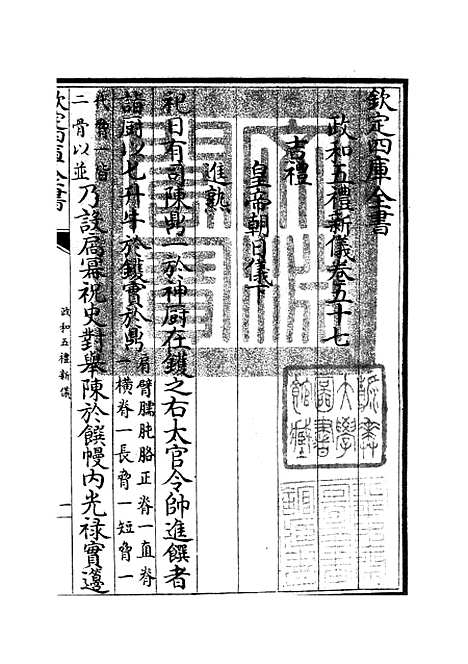 欽定四庫全書
政和五禮新儀卷五十七
吉禮
皇帝朝日儀下
進熟
祀日有司陳鼎一於神厨在鑊之右太官令帥進饌者
詣厨以匕升牛於鑊實於鼎肩臂臑肫胳正脊一直脊
一横脊一長脅一短脅一
代脅一皆
二骨以並乃設扃冪祝史對舉陳於饌幔内光禄實籩
欽定四庫全書
政和五禮新儀
燕京
大學
圖書
館藏